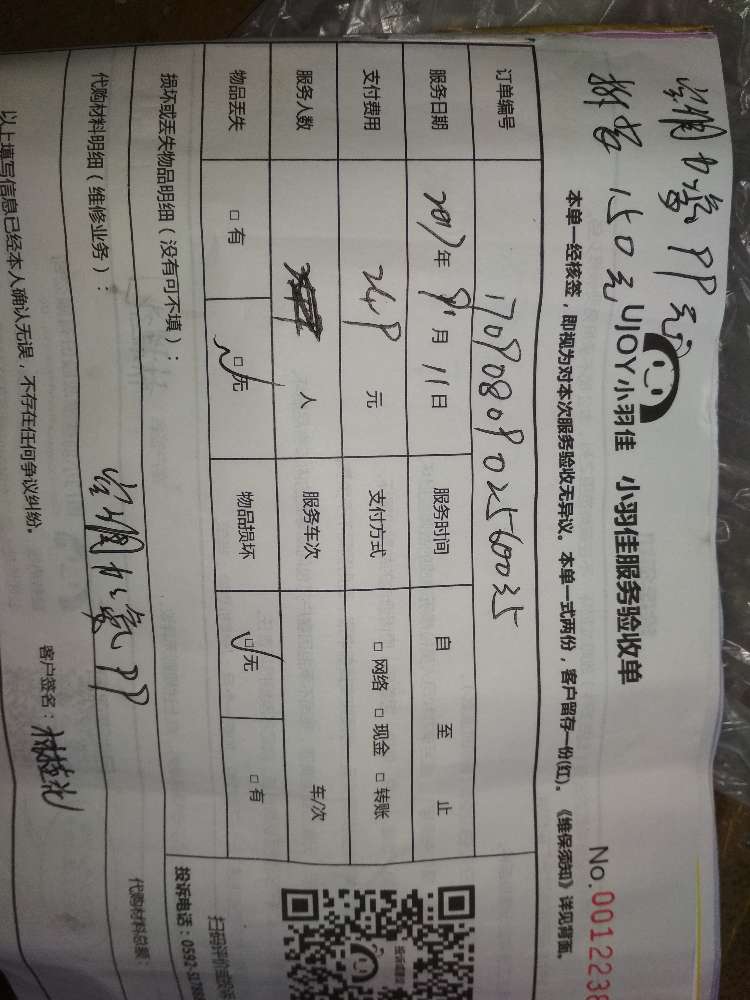 空调加氨PP元
拆含150元
UJOY小羽佳 小羽佳服务验收单
No.0012238
本单一经核签，即视为对本次服务验收无异议。本单一式两份，客户留存一份(红)。《维保须知》详见背面。
订单编号 17080802560025
服务日期 2017年8月11日 服务时间 自 至 止
支付费用 248 元 支付方式 □ 网络 □ 现金 □ 转账
服务人数 人 服务车次 车/次
物品丢失 □ 有 □ 无 物品损坏 □ 无 □ 有
损坏或丢失物品明细（没有可不填）：
代购材料明细（维修业务）： 代购材料总额：
空调加氨PP
以上填写信息已经本人确认无误，不存在任何争议纠纷。
客户签名：
投诉电话：0592-517